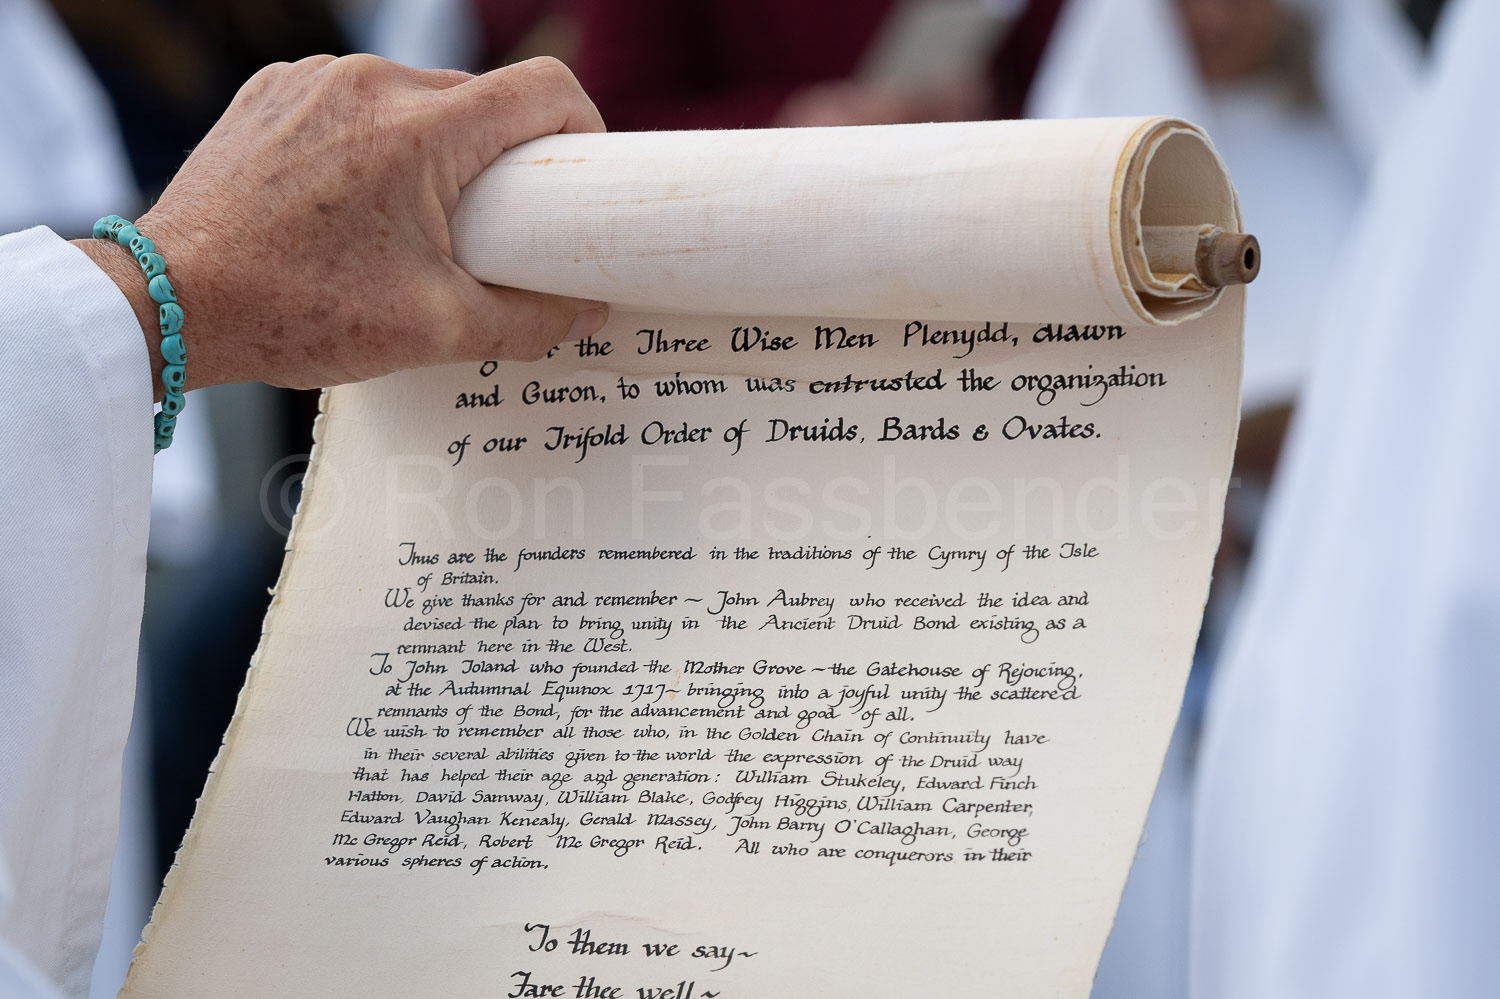 the Three Wise Men Plenydd, Alawn
and Guron, to whom was entrusted the organization
of our Trifold Order of Druids, Bards & Ovates.
© Ron Fassbender
Thus are the founders remembered in the traditions of the Cymry of the Isle
of Britain.
We give thanks for and remember ~ John Aubrey who received the idea and
devised the plan to bring unity in the Ancient Druid Bond existing as a
remnant here in the West.
To John Toland who founded the Mother Grove ~ the Gatehouse of Rejoicing,
at the Autumnal Equinox 1717 ~ bringing into a joyful unity the scattered
remnants of the Bond, for the advancement and good of all.
We wish to remember all those who, in the Golden Chain of Continuity have
in their several abilities given to the world the expression of the Druid way
that has helped their age and generation: William Stukeley, Edward Finch
Hatton, David Samway, William Blake, Godfrey Higgins, William Carpenter,
Edward Vaughan Kenealy, Gerald Massey, John Barry O'Callaghan, George
Mc Gregor Reid, Robert Mc Gregor Reid. All who are conquerors in their
various spheres of action.
To them we say ~
Fare thee well ~